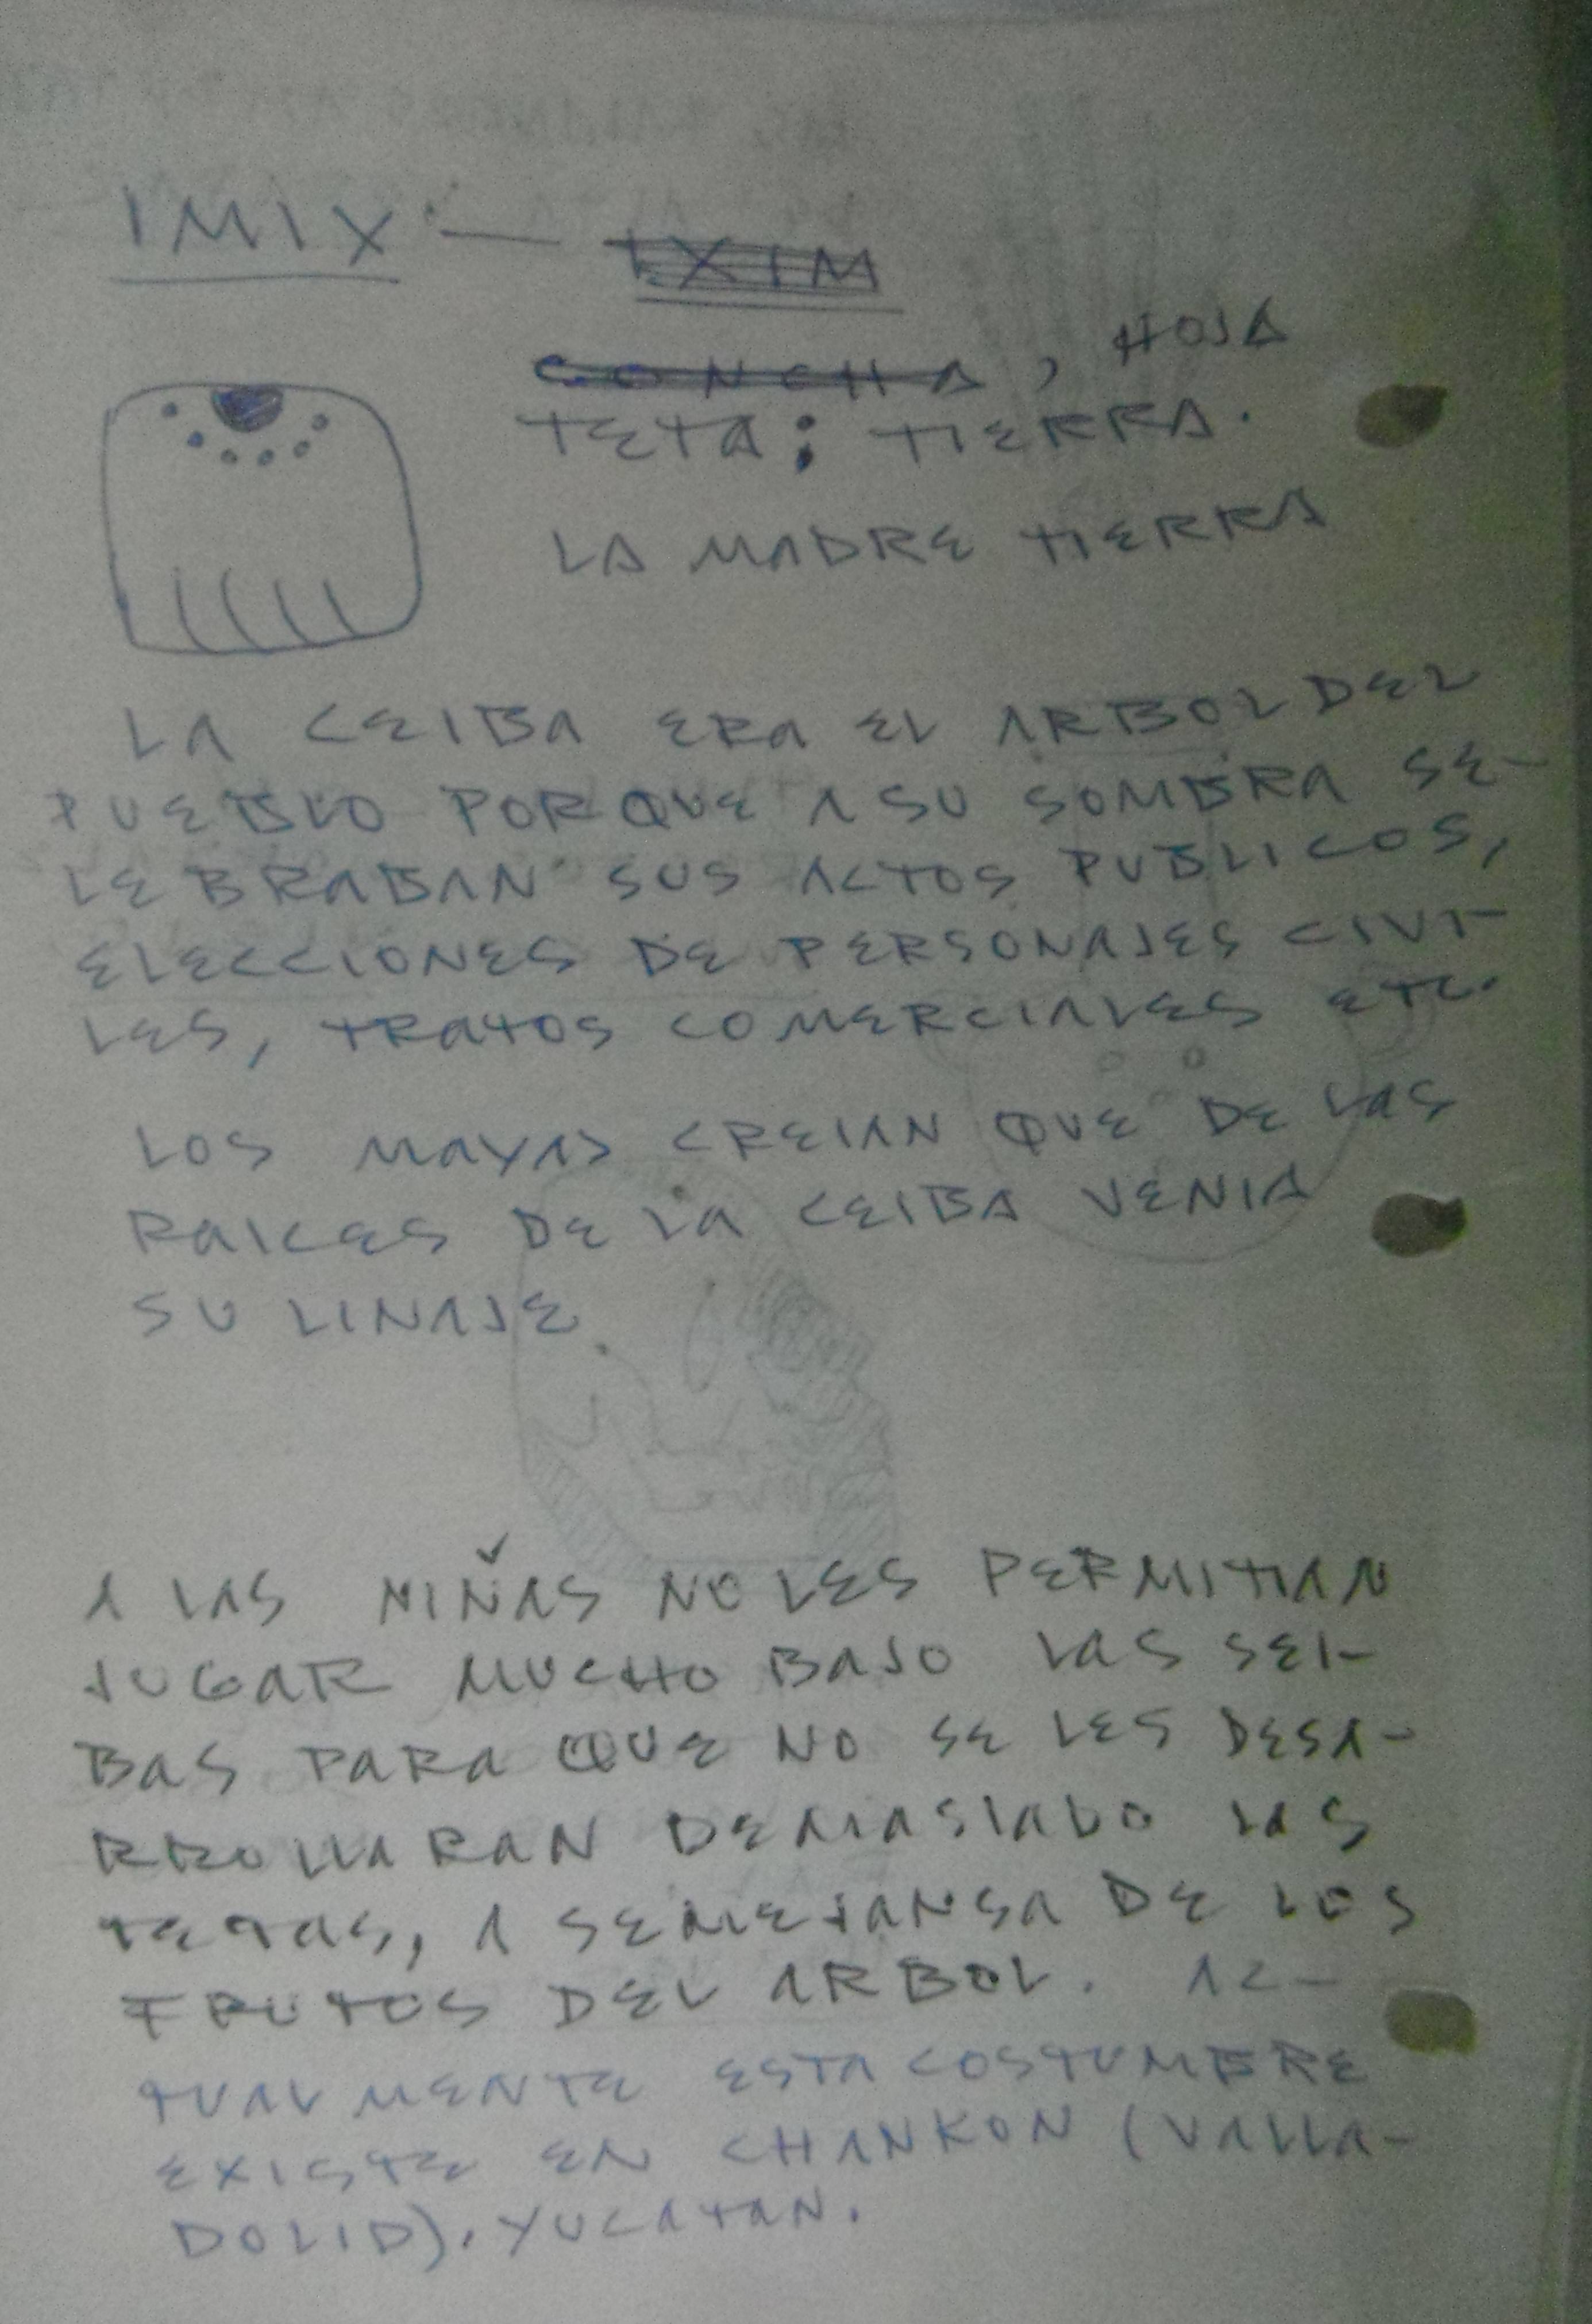 IMIX — IXIM
CONCHA, HOJA
TETA; TIERRA.
LA MADRE TIERRA
LA CEIBA ERA EL ARBOL DEL
PUEBLO PORQUE A SU SOMBRA SE-
LEBRABAN SUS ACTOS PUBLICOS,
ELECCIONES DE PERSONAJES CIVI-
LES, TRATOS COMERCIALES ETC.
LOS MAYAS CREIAN QUE DE LAS
RAICES DE LA CEIBA VENIA
SU LINAJE.
A LAS NIÑAS NO LES PERMITIAN
JUGAR MUCHO BAJO LAS SEI-
BAS PARA QUE NO SE LES DESA-
RROLLARAN DEMASIADO LAS
TETAS, A SEMEJANSA DE LOS
FRUTOS DEL ARBOL. AC-
TUALMENTE ESTA COSTUMBRE
EXISTE EN CHANKON (VALLA-
DOLID), YUCATAN.